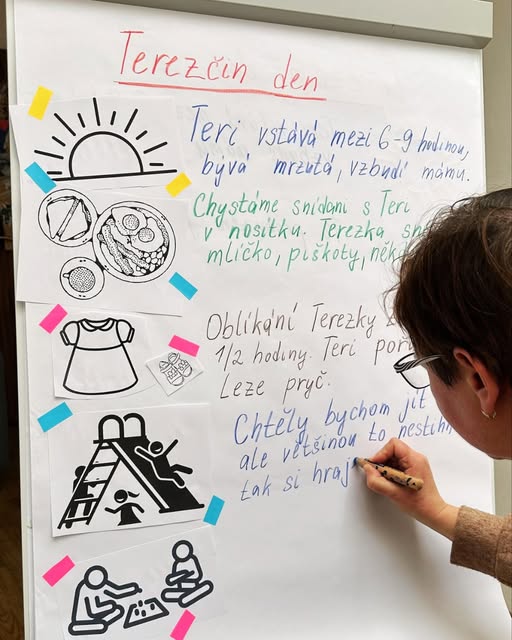 Terezčin den
Teri vstává mezi 6-9 hodinou,
bývá mrzutá, vzbudí mámu.
Chystáme snídani s Teri
v nosítku. Terezka
mlíčko, piškoty,
Oblíkání Terezky
1/2 hodiny. Teri
Leze pryč.
Chtěly bychom jít
ale většinou to
tak si